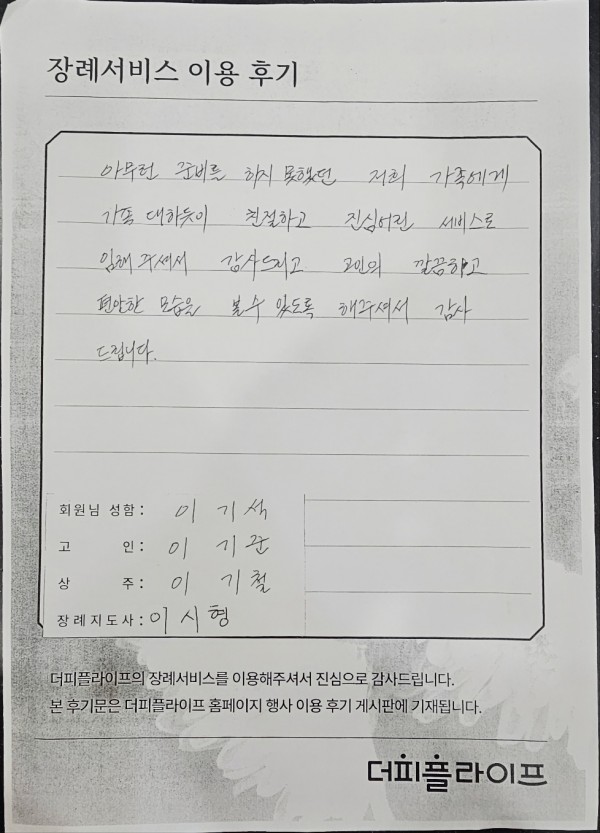 장례서비스 이용 후기
아무런 준비를 하지 못했던 저희 가족에게
가족 대하듯이 친절하고 진심어린 서비스로
임해 주셔서 감사드리고 고인의 깔끔하고
편안한 모습을 볼 수 있도록 해주셔서 감사
드립니다.
회원님 성함: 이 기석
고 인: 이 기
상 주: 이 기철
장례지도사: 이 시 형
더피플라이프의 장례서비스를 이용해주셔서 진심으로 감사드립니다.
본 후기문은 더피플라이프 홈페이지 행사 이용 후기 게시판에 기재됩니다.
더피플라이프